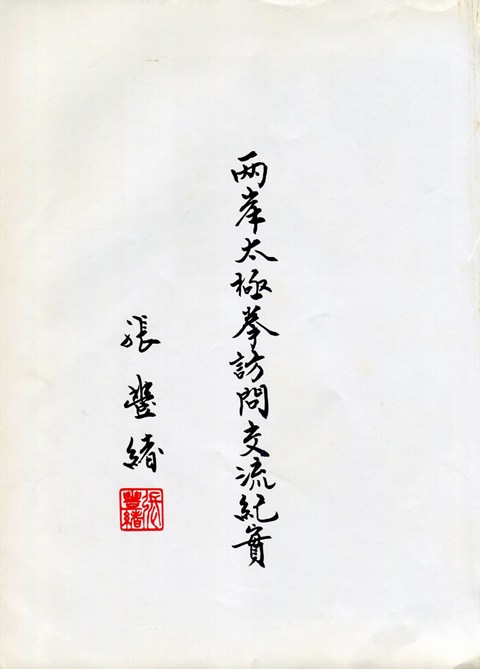 两岸太極拳訪問交流紀實
張豐緒
張豐緒